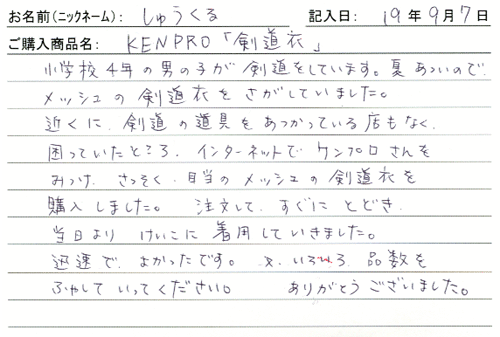 お名前(ニックネーム): しゅうくる 記入日: 19年9月7日
ご購入商品名: KENPRO「剣道衣」
小学校4年の男の子が剣道をしています。夏あついので、
メッシュの剣道衣をさがしていました。
近くに、剣道の道具をあつかっている店もなく、
困っていたところ、インターネットでケンプロさんを
みつけ、さっそく、目当のメッシュの剣道衣を
購入しました。 注文して、すぐにとどき、
当日よりけいこに着用していきました。
迅速で、よかったです。 又、いろいろ品数を
ふやしていってください。 ありがとうございました。